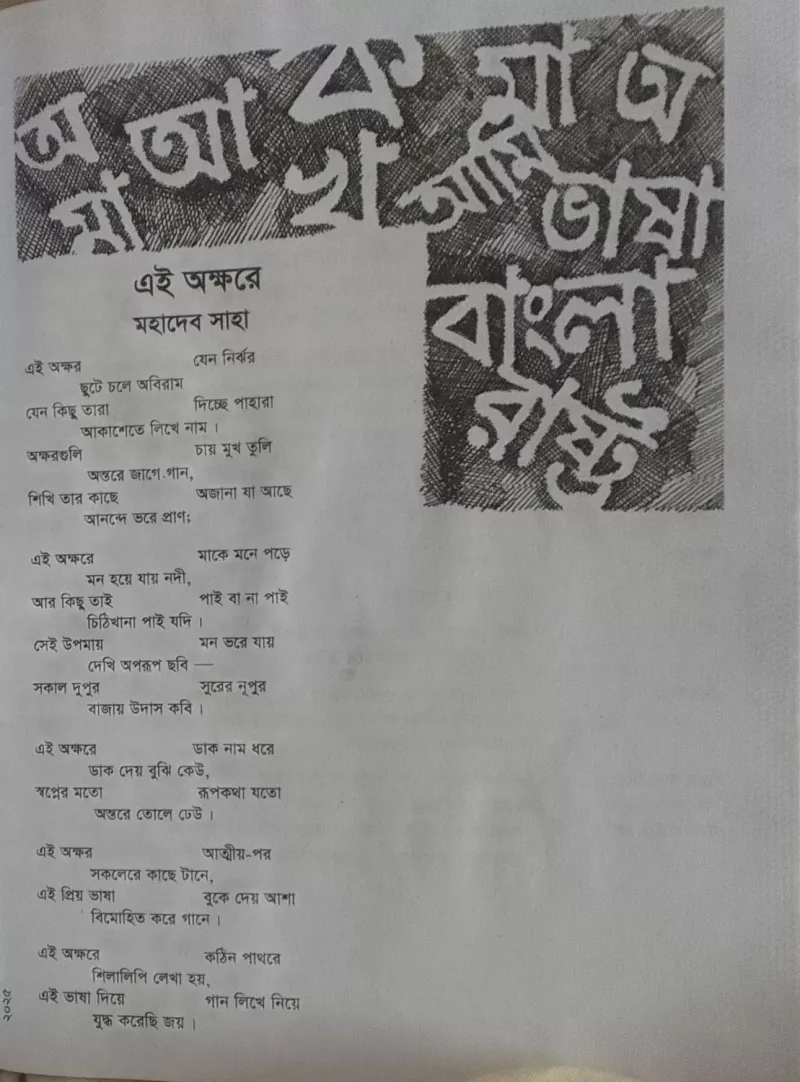 অ আ ক মা অ
মা খ আমি ভাষা
বাংলা
রাষ্ট্র
এই অক্ষরে
মহাদেব সাহা
এই অক্ষর যেন নির্ঝর
ছুটে চলে অবিরাম
যেন কিছু তারা দিচ্ছে পাহারা
আকাশেতে লিখে নাম ।
অক্ষরগুলি চায় মুখ তুলি
অন্তরে জাগে গান,
শিখি তার কাছে অজানা যা আছে
আনন্দে ভরে প্রাণ;
এই অক্ষরে মাকে মনে পড়ে
মন হয়ে যায় নদী,
আর কিছু তাই পাই বা না পাই
চিঠিখানা পাই যদি ।
সেই উপমায় মন ভরে যায়
দেখি অপরূপ ছবি —
সকাল দুপুর সুরের নূপুর
বাজায় উদাস কবি ।
এই অক্ষরে ডাক নাম ধরে
ডাক দেয় বুঝি কেউ,
স্বপ্নের মতো রূপকথা যতো
অন্তরে তোলে ঢেউ ।
এই অক্ষর আত্মীয়-পর
সকলেরে কাছে টানে,
এই প্রিয় ভাষা বুকে দেয় আশা
বিমোহিত করে গানে ।
এই অক্ষরে কঠিন পাথরে
শিলালিপি লেখা হয়,
এই ভাষা দিয়ে গান লিখে নিয়ে
যুদ্ধ করেছি জয় ।
২০২৫